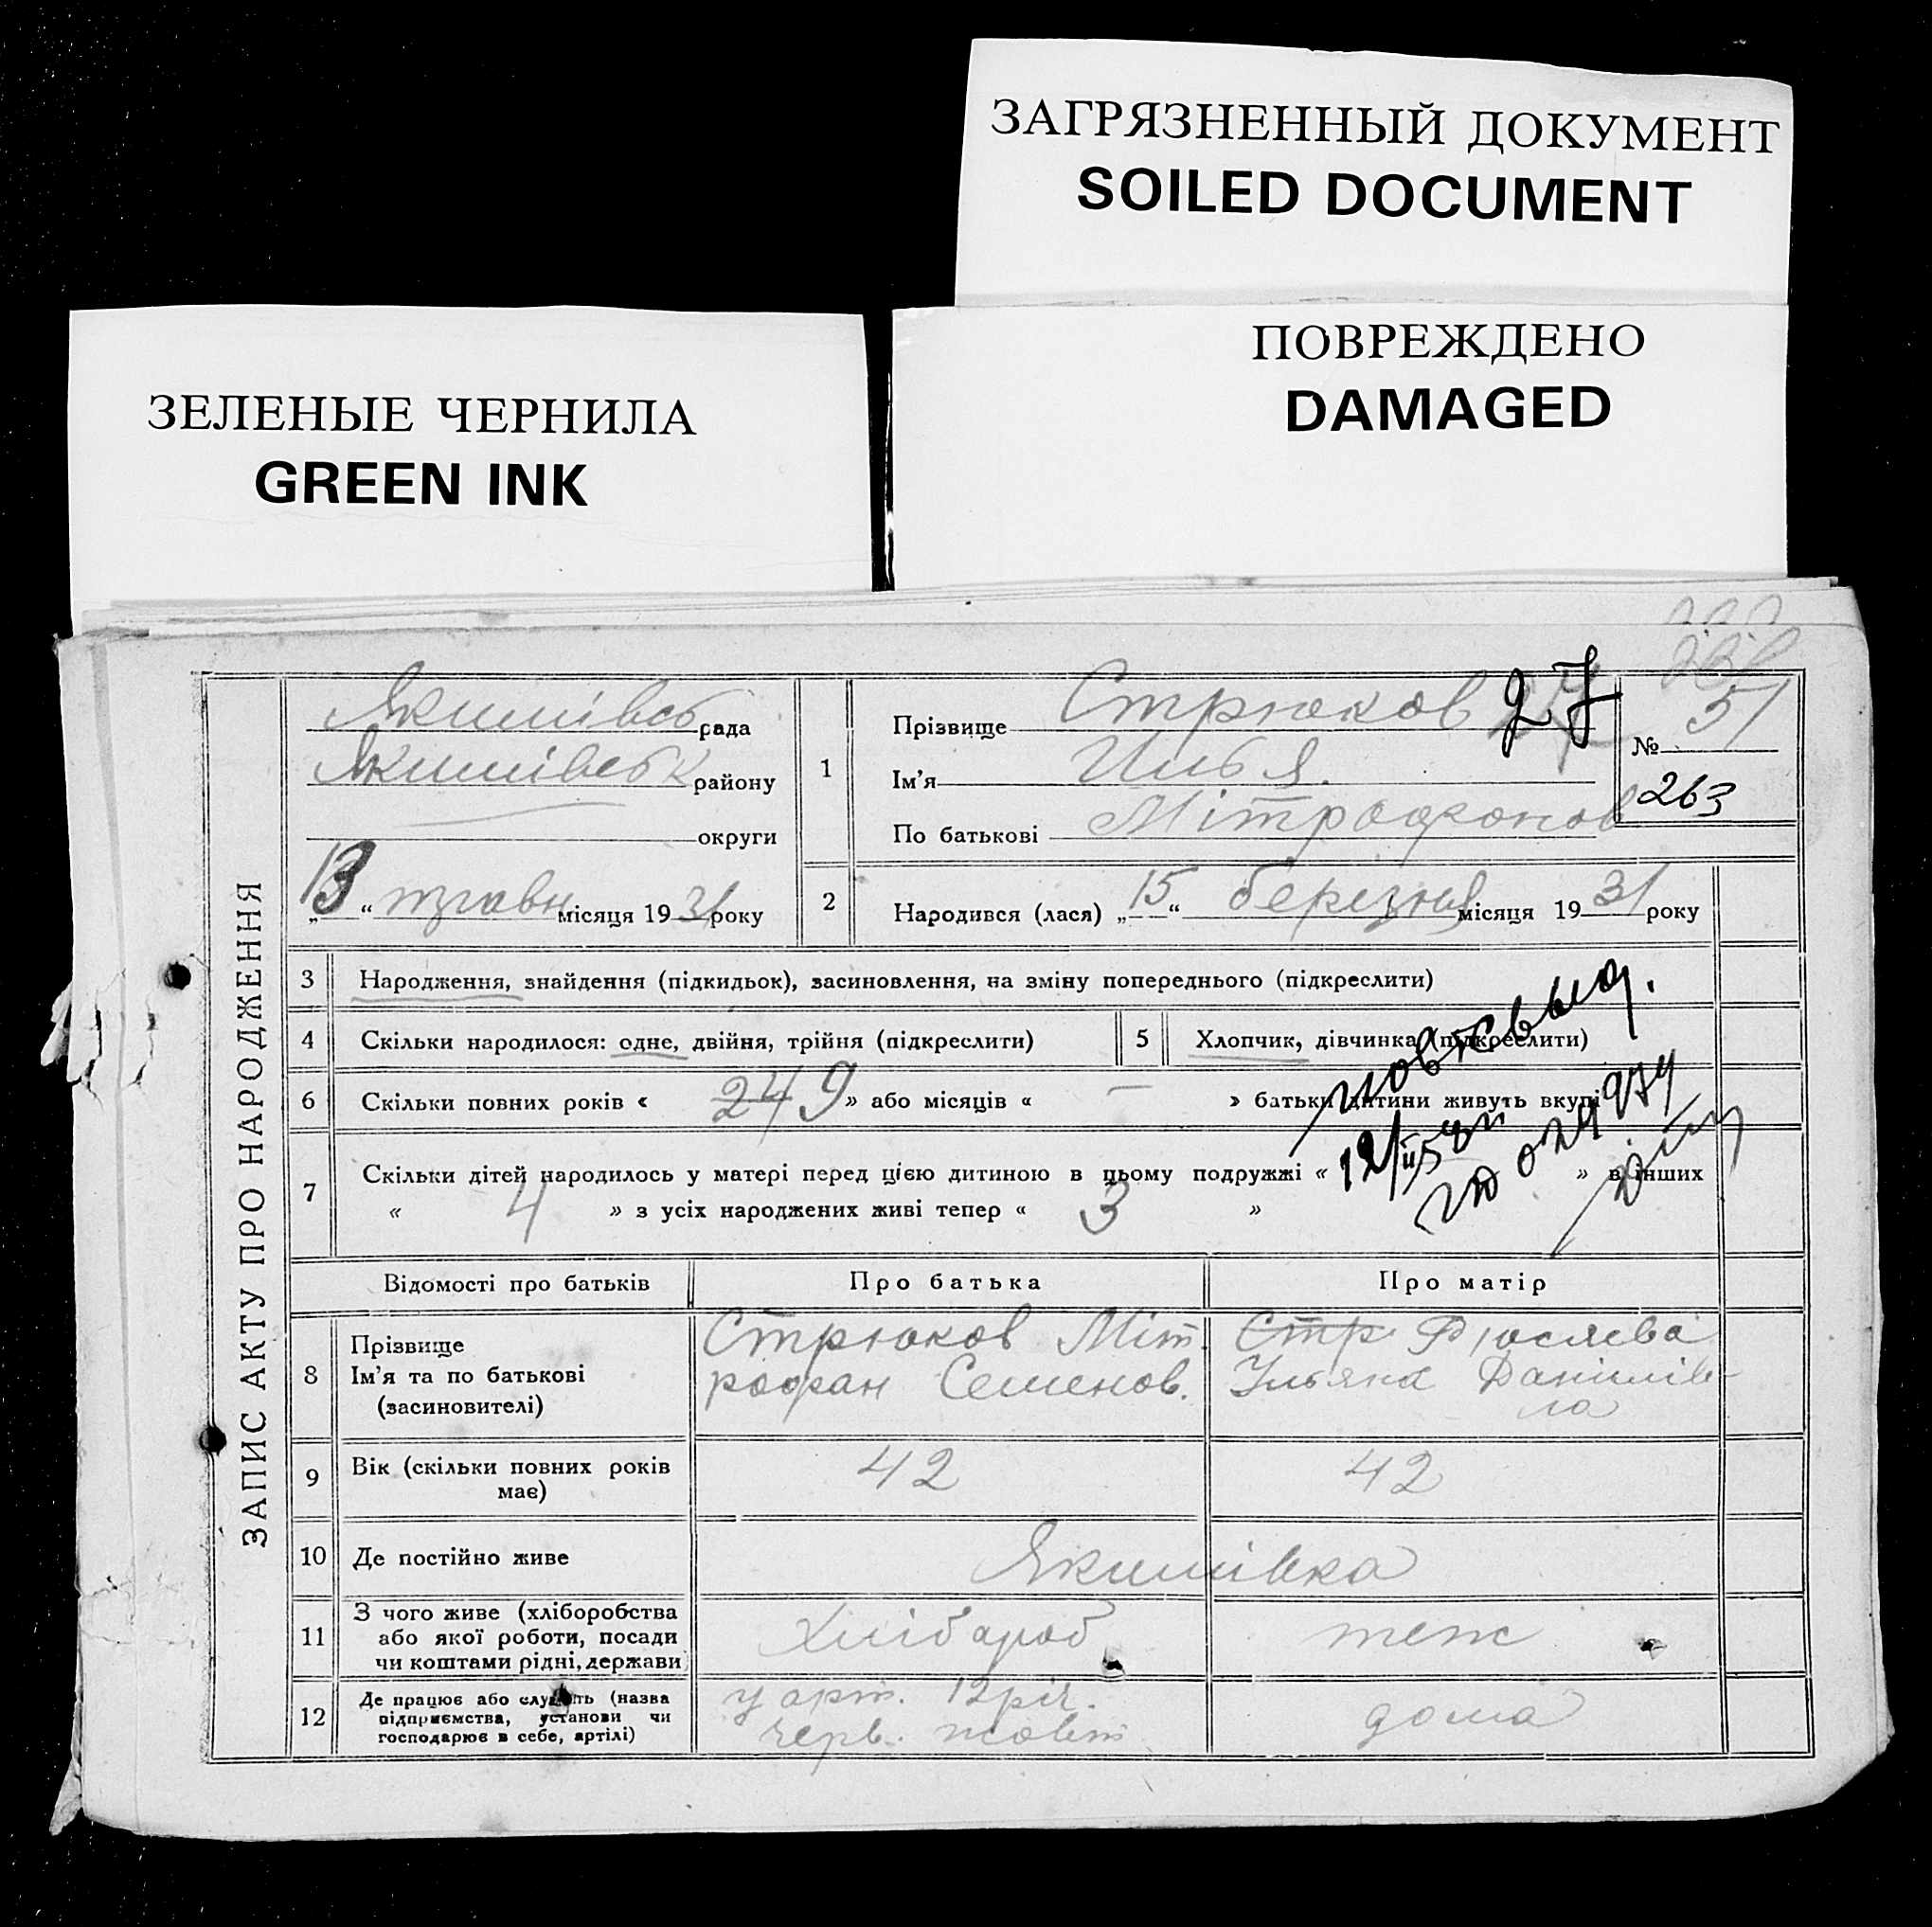 ЗАГРЯЗНЕННЫЙ ДОКУМЕНТ
SOILED DOCUMENT
ПОВРЕЖДЕНО
DAMAGED
ЗЕЛЕНЫЕ ЧЕРНИЛА
GREEN INK
ЗАПИС АКТУ ПРО НАРОДЖЕННЯ
Якимівсь рада
Якимівськ району
округи
„13“ травн місяця 1931 року
1
Прізвище Стрюков
Ім'я Илья.
По батькові Мітрофонов
27
51
№
263
2
Народився (лася) „15“ березня місяця 1931 року
3 Народження, знайдення (підкидьок), засиновлення, на зміну попереднього (підкреслити)
4 Скільки народилося: одне, двійня, трійня (підкреслити)
5 Хлопчик, дівчинка (підкреслити)
6 Скільки повних років « 24 9 » або місяців « — » батьки дитини живуть вкупі
7 Скільки дітей народилось у матері перед цією дитиною в цьому подружжі « » в інших
« 4 » з усіх народжених живі тепер « 3 »
Відомості про батьків Про батька Про матір
8 Прізвище
Ім'я та по батькові
(засиновителі)
Стрюков Міт.
рофан Семенов.
Стр
Ульяна Данилів-
на
9 Вік (скільки повних років
має)
42 42
10 Де постійно живе Якимівка
11 З чого живе (хліборобства
або якої роботи, посади
чи коштами рідні, держави)
Хлібароб теж
12 Де працює або служить (назва
підприємства, установи чи
господарює в себе, артілі)
у арт. 12 річ.
черв. жовт
дома